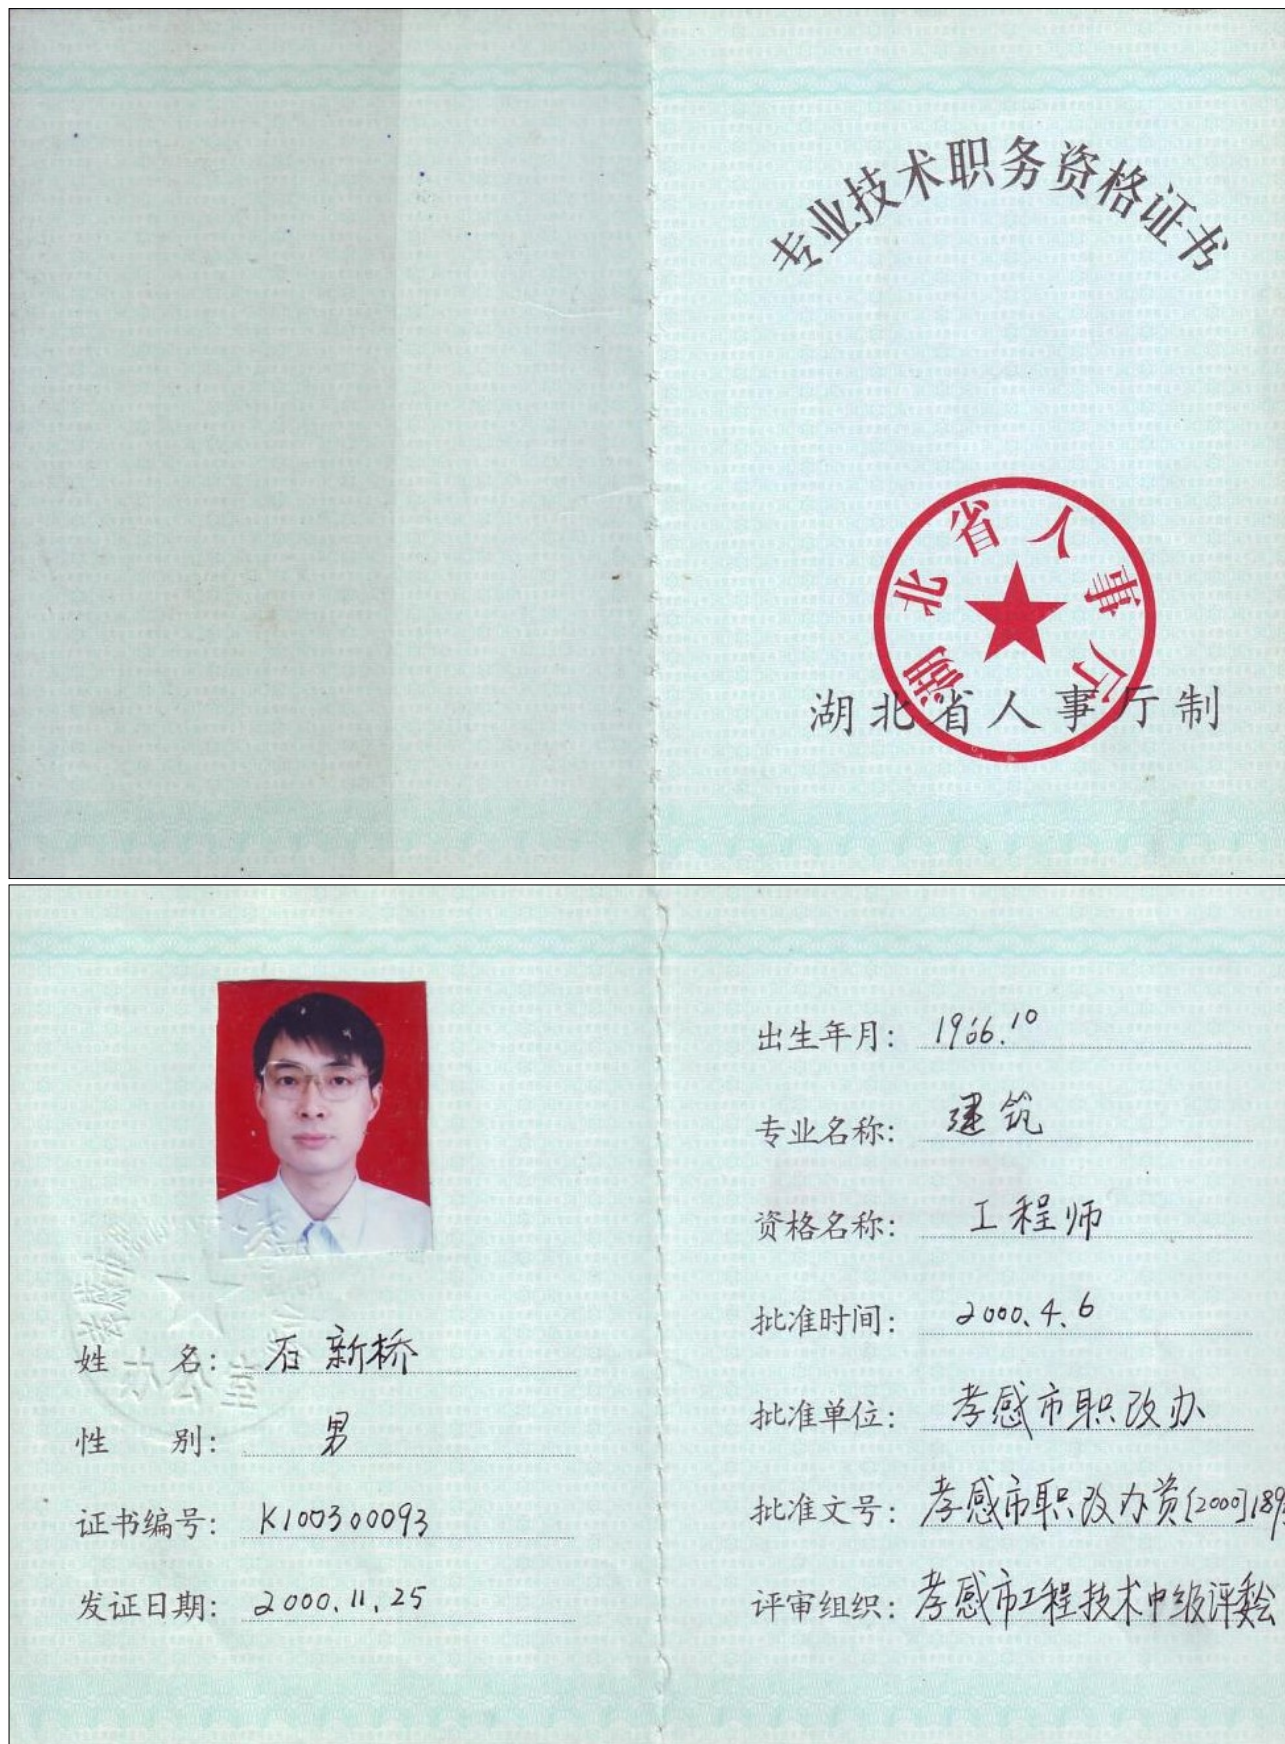 专业技术职务资格证书
湖北省人事厅
湖北省人事厅制
姓名: 石新桥
性别: 男
证书编号: K100300093
发证日期: 2000.11.25
办公室
出生年月: 1966.10
专业名称: 建筑
资格名称: 工程师
批准时间: 2000.4.6
批准单位: 孝感市职改办
批准文号: 孝感市职改办资[2000]189
评审组织: 孝感市工程技术中级评委会